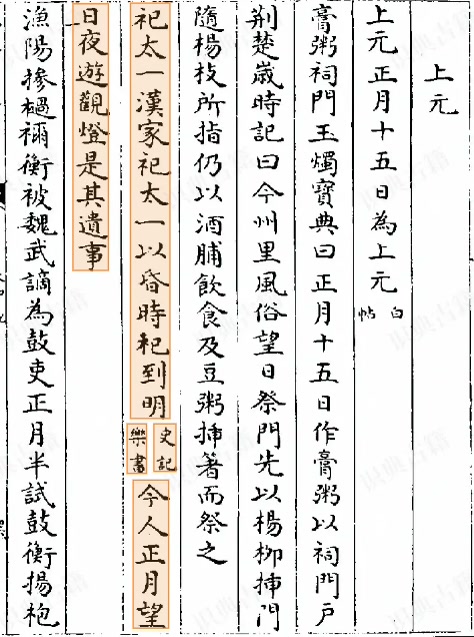 上元
上元正月十五日為上元白帖
膏粥祠門玉燭寶典曰正月十五日作膏粥以祠門戶
荆楚歲時記曰今州里風俗望日祭門先以楊柳揷門
隨楊枝所指仍以酒脯飲食及豆粥揷箸而祭之
祀太一漢家祀太一以昏時祀到明史記樂書今人正月望
日夜遊觀燈是其遺事
漁陽摻檛禰衡被魏武謫為鼓吏正月半試鼓衡揚袍